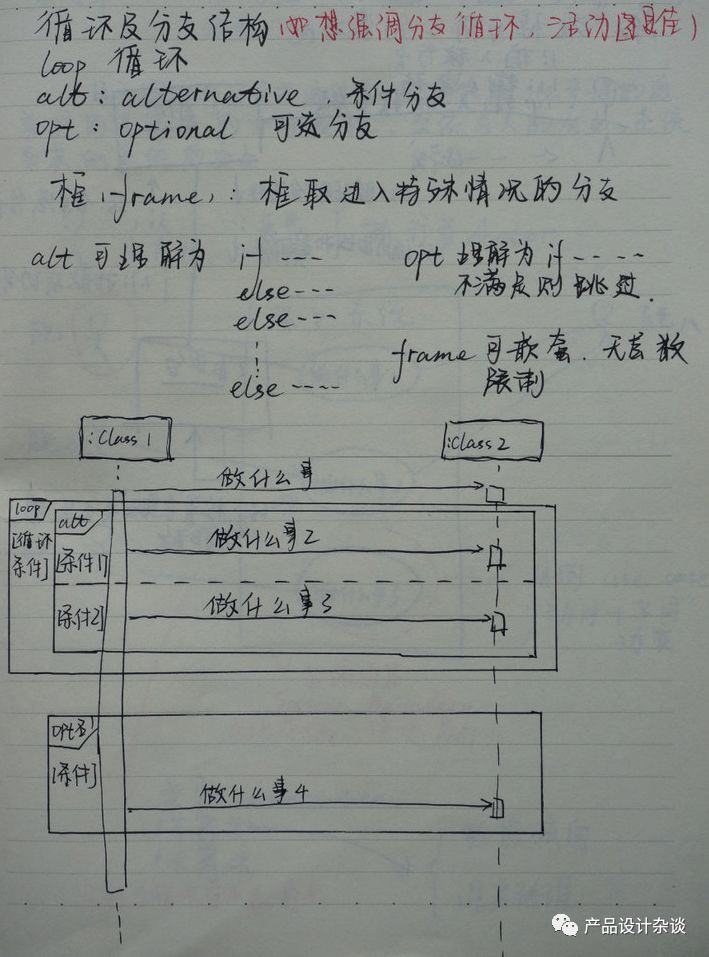 循环及分支结构(如想强调分支循环,活动图最佳)
loop 循环
alt:alternative,条件分支
opt:optional 可选分支
框(frame):框取进入特殊情况的分支
alt 可理解为 if ---
else ---
else ---
else ----
opt 理解为 if -----
不满足则跳过.
frame可嵌套.无层数
限制
:Class 1
:Class 2
做什么事
loop
[循环
条件]
alt
[条件1]
做什么事2
[条件2]
做什么事3
opt
[条件]
做什么事4
产品设计杂谈